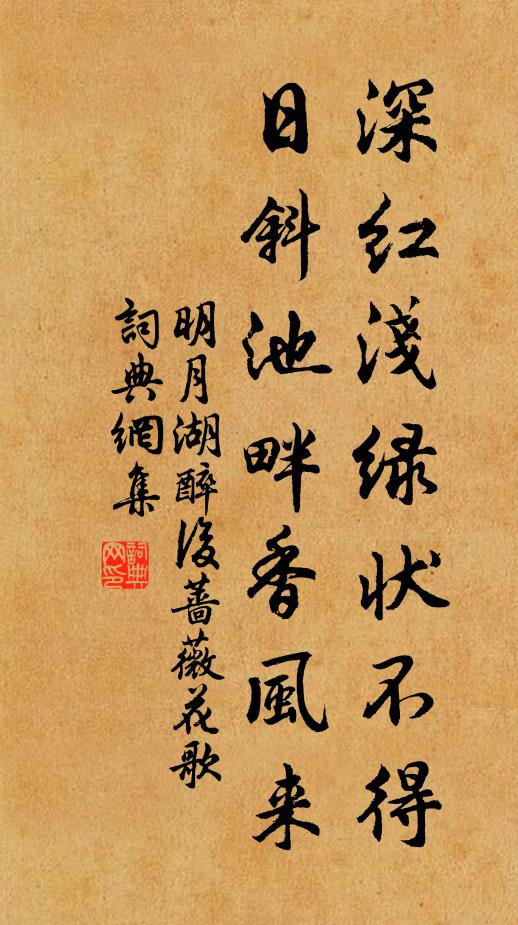 深紅淺绿状不得
日斜池畔香風来
明月湖醉後薔薇花歌
詞典網集
詞典网印